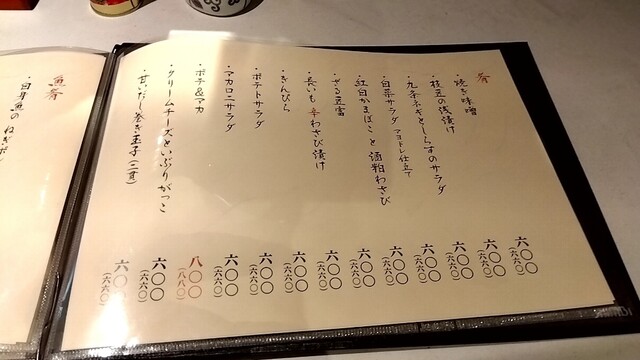 肴
・焼き味噌
・枝豆の浅漬け
・九条ネギとしらすのサラダ
・白菜サラダ マヨドレ仕立て
・紅白かまぼこと酒粕わさび
・ざる豆富
・長いも辛わさび漬け
・きんぴら
・ポテトサラダ
・マカロニサラダ
・ポテ&マカ
・クリームチーズといぶりがっこ
・甘いだし巻き玉子(二貫)
六〇〇
(六六〇)
六〇〇
(六六〇)
六〇〇
(六六〇)
六〇〇
(六六〇)
六〇〇
(六六〇)
六〇〇
(六六〇)
六〇〇
(六六〇)
六〇〇
(六六〇)
六〇〇
(六六〇)
六〇〇
(六六〇)
八〇〇
(八八〇)
六〇〇
(六六〇)
六〇〇
(六六〇)
魚肴
・白身魚のねぎポン